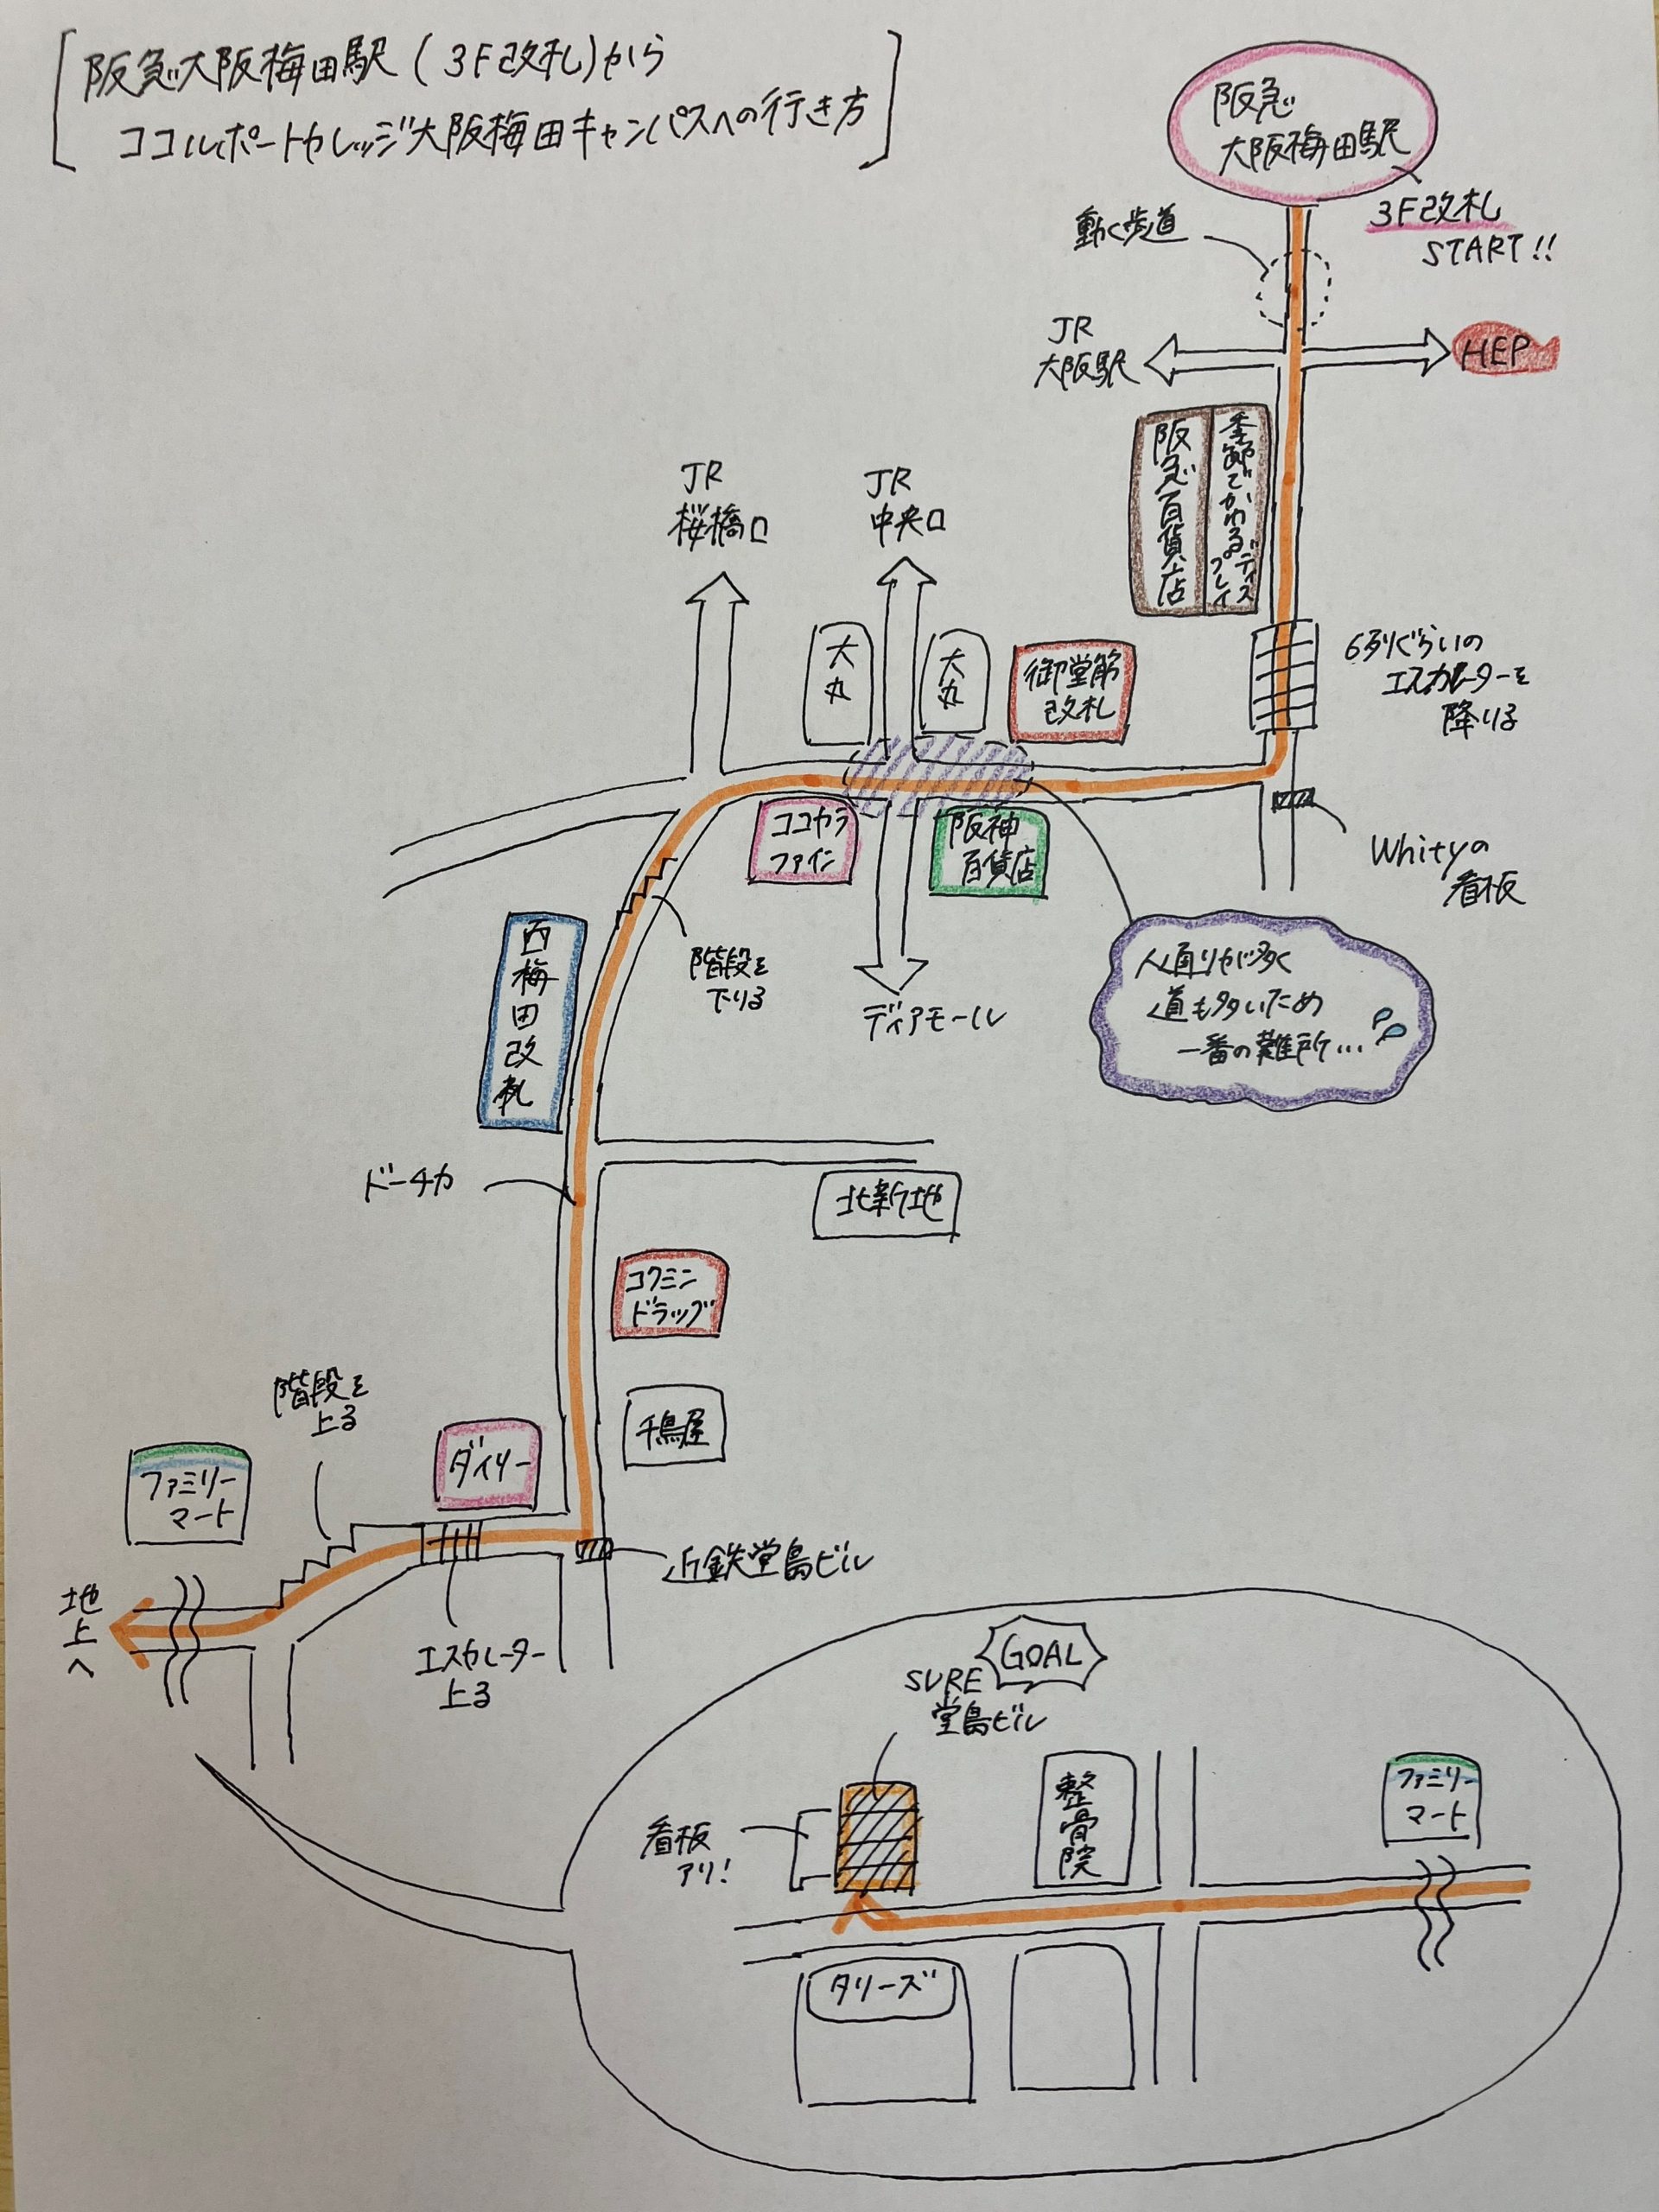 阪急大阪梅田駅(3F改札)から
ココルポートカレッジ大阪梅田キャンパスへの行き方
阪急
大阪梅田駅
3F改札
START!!
動く歩道
JR
大阪駅
HEP
阪急百貨店
季節でかわるディスプレイ
JR
桜橋口
JR
中央口
大丸
大丸
御堂筋
改札
6列ぐらいの
エスカレーターを
降りる
ココカラ
ファイン
阪神
百貨店
Whityの
看板
人通りが多く
道も多いため
一番の難所...
階段を
下りる
ディアモール
西梅田改札
ドーチカ
北新地
コクミン
ドラッグ
千鳥屋
階段を
上る
ダイリー
ファミリー
マート
近鉄堂島ビル
地上へ
エスカレーター
上る
GOAL
SURE
堂島ビル
看板
アリ!
整骨院
ファミリー
マート
タリーズ